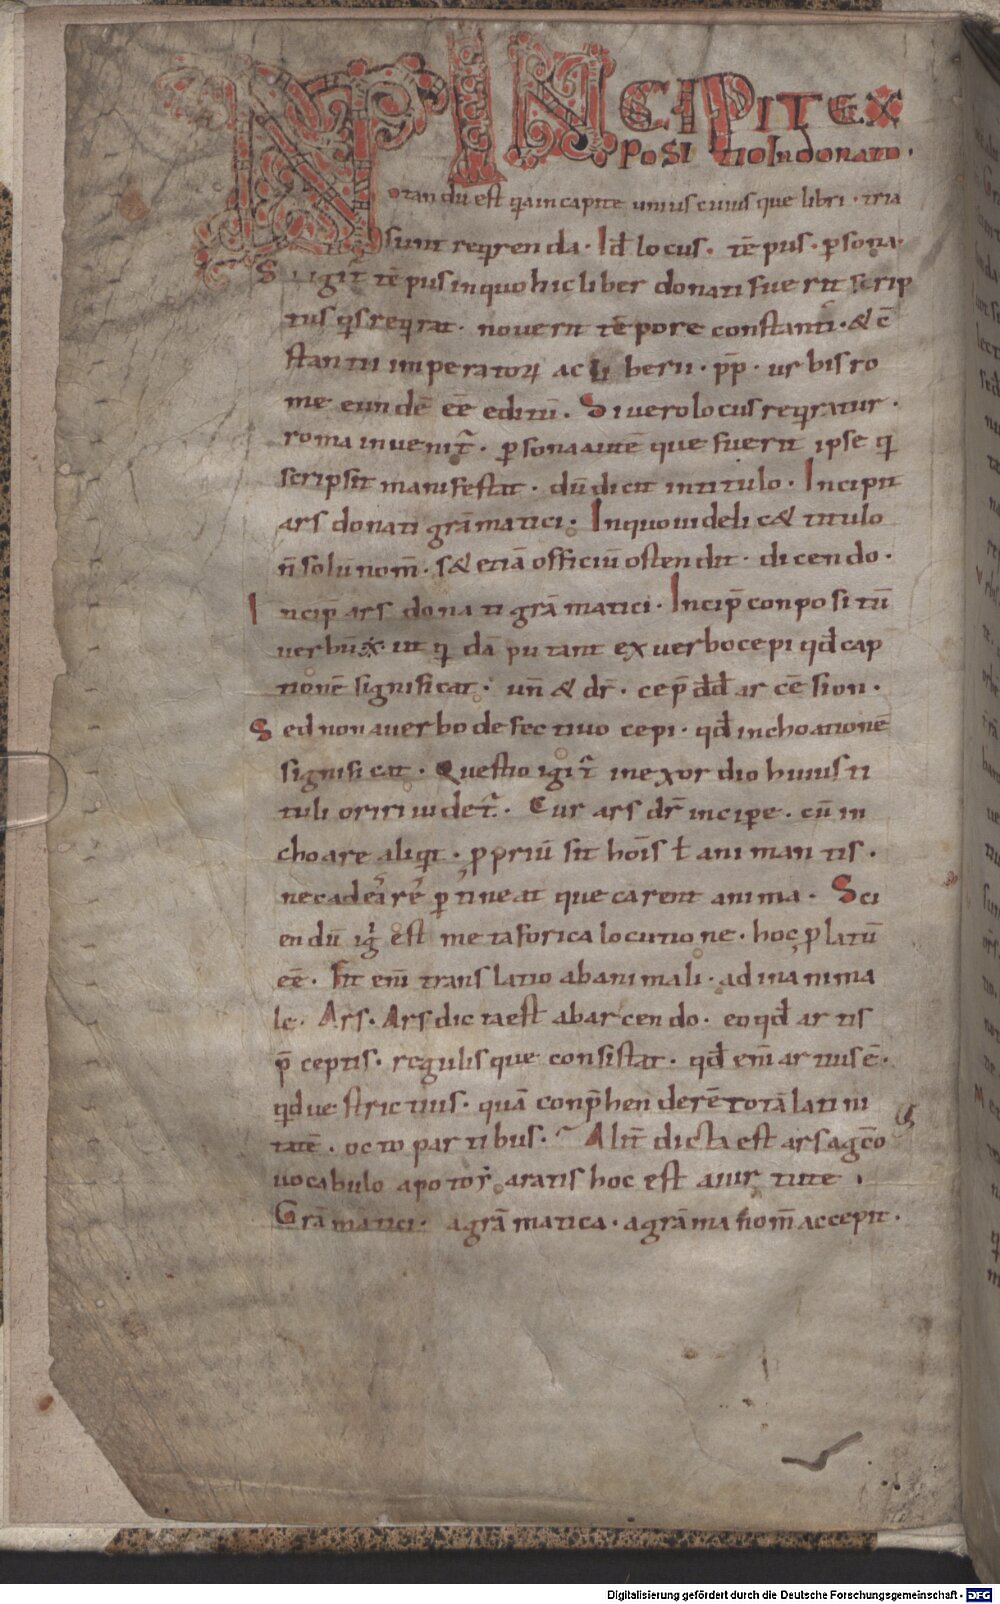 INCIPIT EX
POSITIO IN DONATO.
Notandū est qa in capite uniuscuiusque libri · tria
sunt reqrenda · Id̄ locus · tēpus · psona ·
Si igit tēpus in quo hic liber donati fuerit scrip
tus qs reqrat · noverit tēpore constanti · & cō
stantii imperatorꝝ ac liberii · pp̄ · urbis ro
me eundē eē editū. Si vero locus reqratur ·
roma invenit᷑ · ꝑsona autē que fuerit ipse q
scripsit manifestat · dū dicit in titulo · Incipit
ars donati grāmatici · In quo videlic& titulo
n̄ solū nom̄ · s& etiā officiū ostendit · dicendo ·
Incip̄ ars donati grāmatici · Incip̄ conpositū
verbū · ut qdā putant ex verbo cepi qd̄ cap
tionē significat · un̄ & dr̄ · cep̄ dd̄ arcē sion ·
Sed non a verbo defectivo cepi · qd̄ inchoationē
significat · Questio igit᷑ in exordio huius ti
tuli oriri videt᷑ · Cur ars dr̄ incipe · cū in
choare aliqit · ꝓpriū sit hōis ł animantis ·
nec ad eā rē ꝑtineat que caret anima · Sci
endū ig̊ est metaforica locutione · hoc platū
eē · Fit eni translatio ab animali · ad inanima
le · Ars · Ars dicta est ab arcendo · eo qd̄ artis
p̄ceptis · regulisque consistat · qd̄ eni artius ē ·
qd ve strictius · quā conp̄hendere totā latini
tatē · octo partibus · Alit̄ dicta est ars a gc̄o
vocabulo apo tor̄ aratis hoc est a virtute ·
Grāmatici · a grāmatica · a grāma nom̄ accepit ·
Digitalisierung gefördert durch die Deutsche Forschungsgemeinschaft - DFG